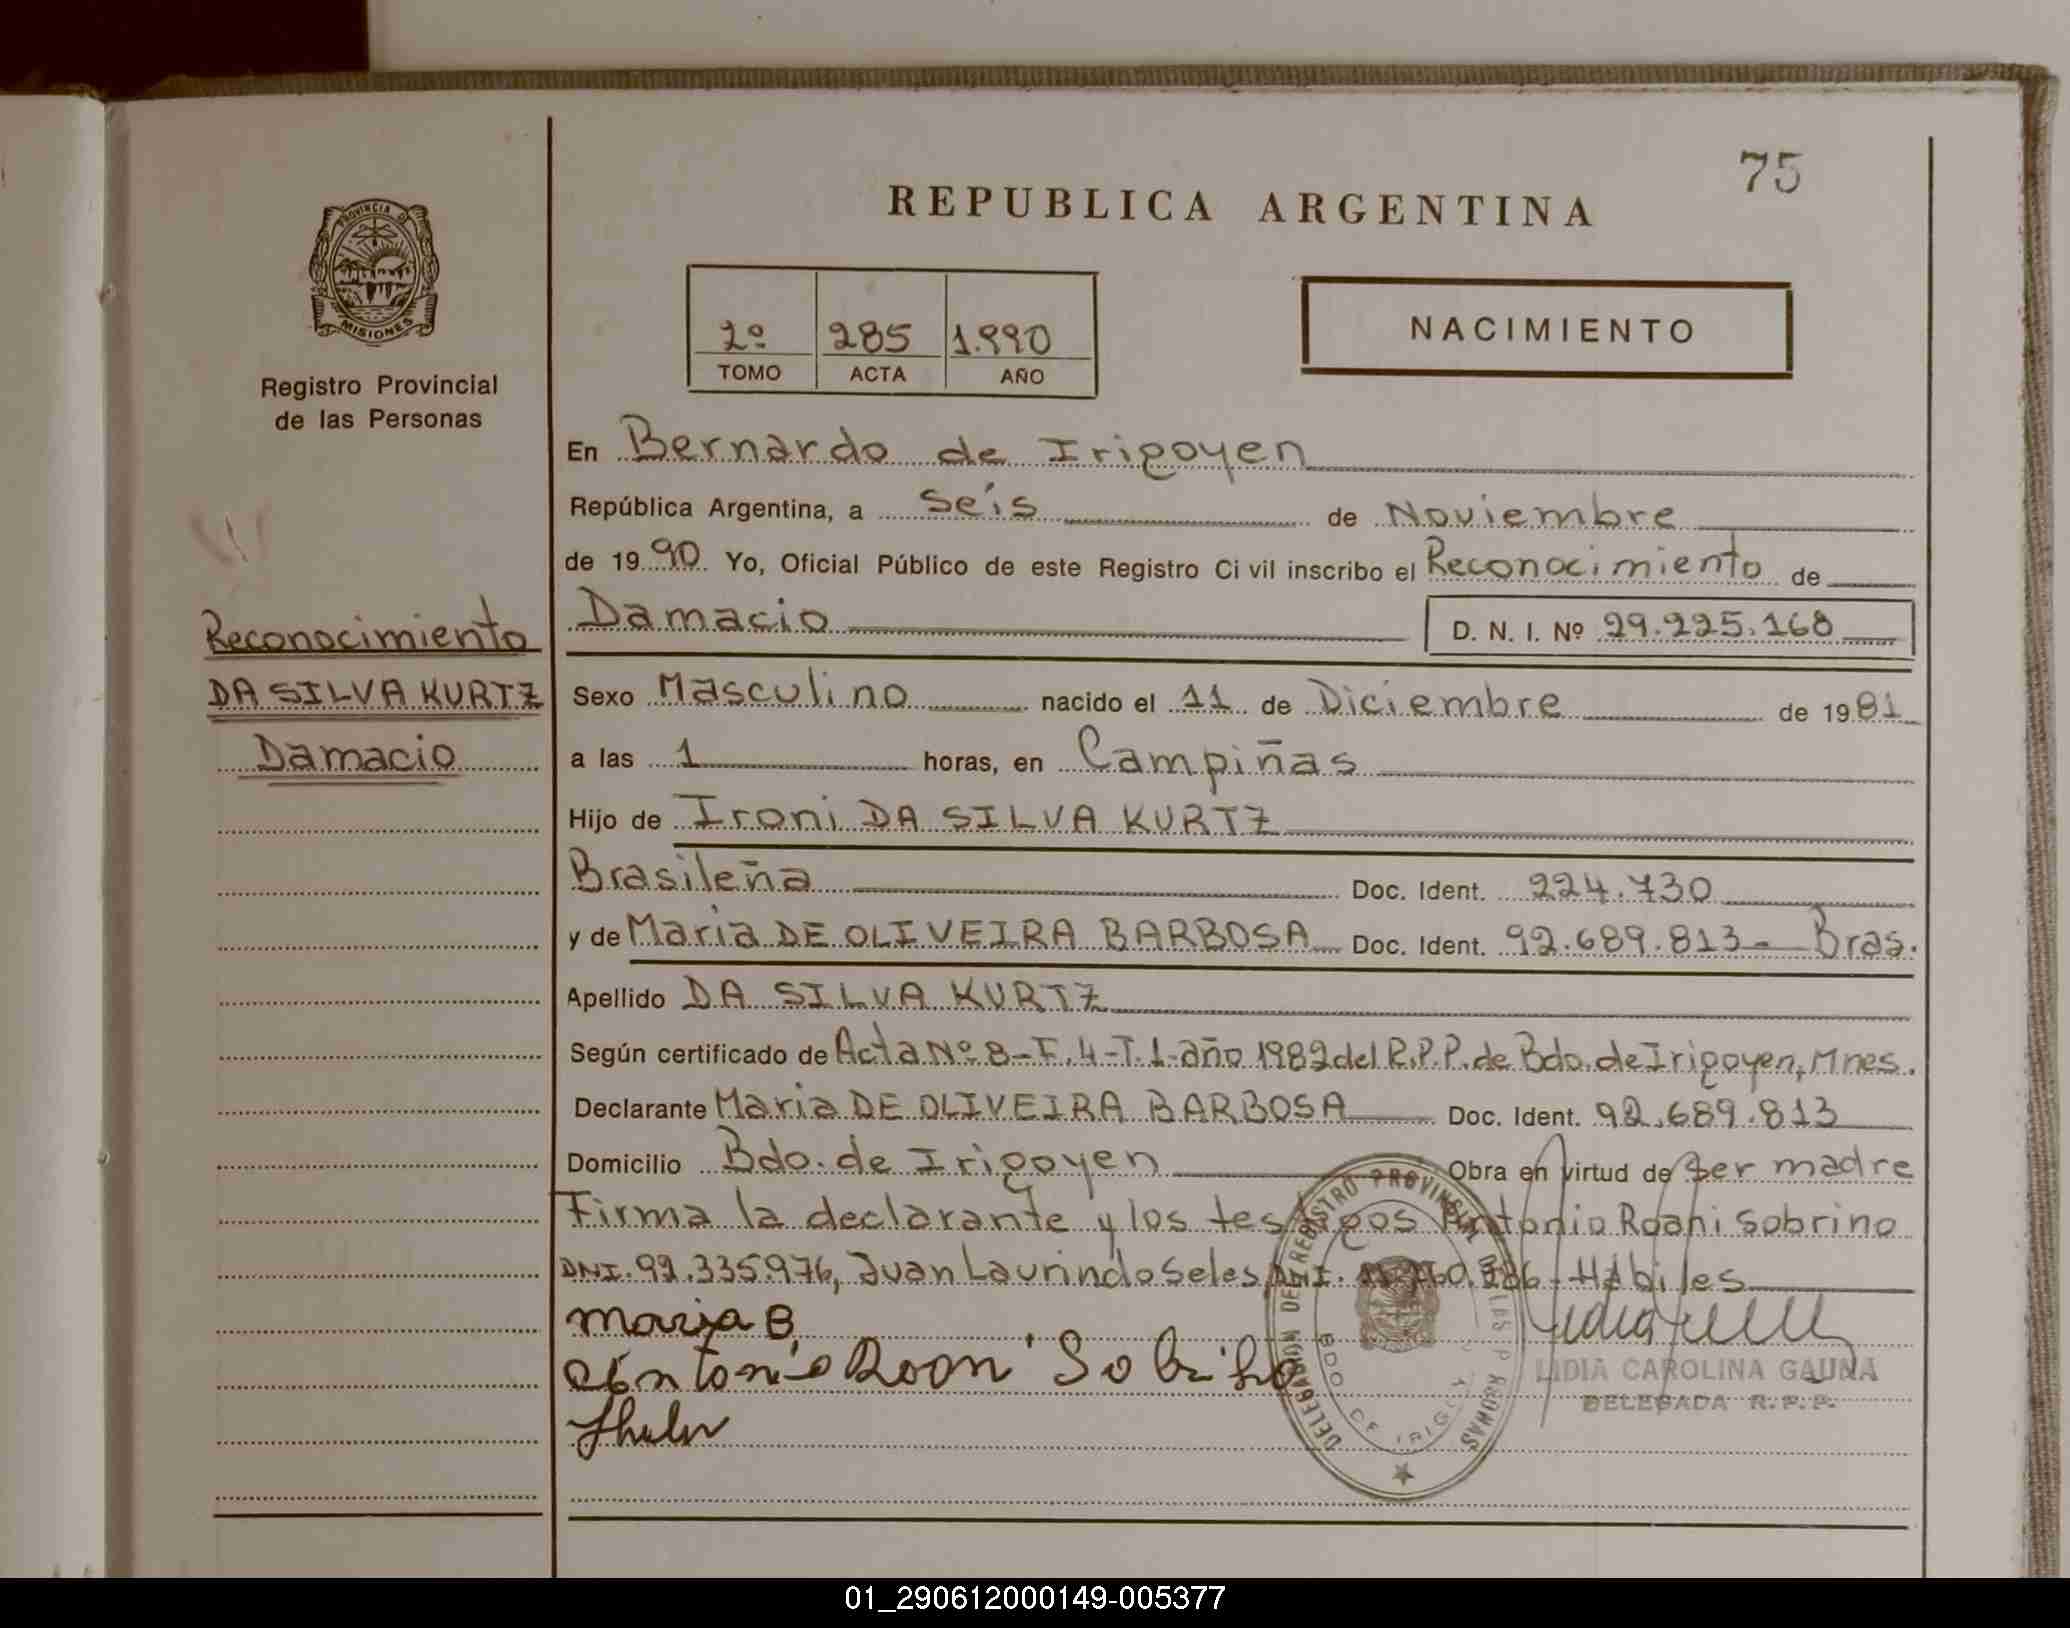 75
REPUBLICA ARGENTINA
PROVINCIA DE
MISIONES
Registro Provincial
de las Personas
2º 285 1.990
TOMO ACTA AÑO
NACIMIENTO
En Bernardo de Irigoyen
República Argentina, a Seis de Noviembre
de 1990 Yo, Oficial Público de este Registro Civil inscribo el Reconocimiento de
Damacio D. N. I. Nº 29.225.168
Reconocimiento
DA SILVA KURTZ
Damacio
Sexo Masculino nacido el 11 de Diciembre de 1981
a las 1 horas, en Campiñas
Hijo de Ironi DA SILVA KURTZ
Brasileña Doc. Ident. 224.730
y de Maria DE OLIVEIRA BARBOSA Doc. Ident. 92.689.813 - Bras.
Apellido DA SILVA KURTZ
Según certificado de Acta Nº 8-F.4-T.1-año 1982 del R.P.P. de Bdo. de Irigoyen, Mnes.
Declarante Maria DE OLIVEIRA BARBOSA Doc. Ident. 92.689.813
Domicilio Bdo. de Irigoyen Obra en virtud de Ser madre
Firma la declarante y los testigos Antonio Roani Sobrino
DNI. 92.335.976, Juan Laurindo Seles, DNI. Hábiles
Maria B
Antonio Roani Sobrino
DELEGACION DEL REGISTRO PROVINCIAL DE LAS PERSONAS
BDO DE IRIGOYEN
LIDIA CAROLINA GAUNA
DELEGADA R.P.P.
01_290612000149-005377